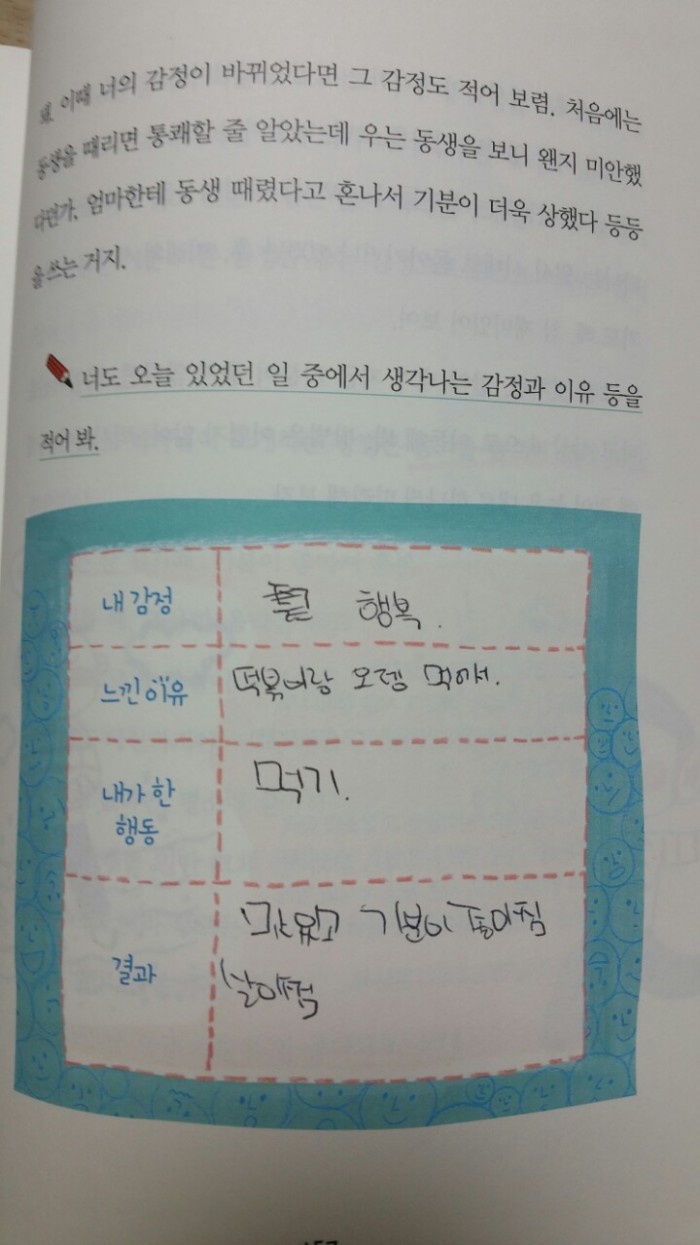 봐. 이때 너의 감정이 바뀌었다면 그 감정도 적어 보렴. 처음에는
동생을 때리면 통쾌할 줄 알았는데 우는 동생을 보니 왠지 미안했
다던가, 엄마한테 동생 때렸다고 혼나서 기분이 더욱 상했다 등등
을 쓰는 거지.
너도 오늘 있었던 일 중에서 생각나는 감정과 이유 등을
적어 봐.
내 감정 행복.
느낀 이유 떡볶이랑 오뎅 먹어서.
내가 한
행동
먹기.
결과
맛있고 기분이 좋아짐
살이찜